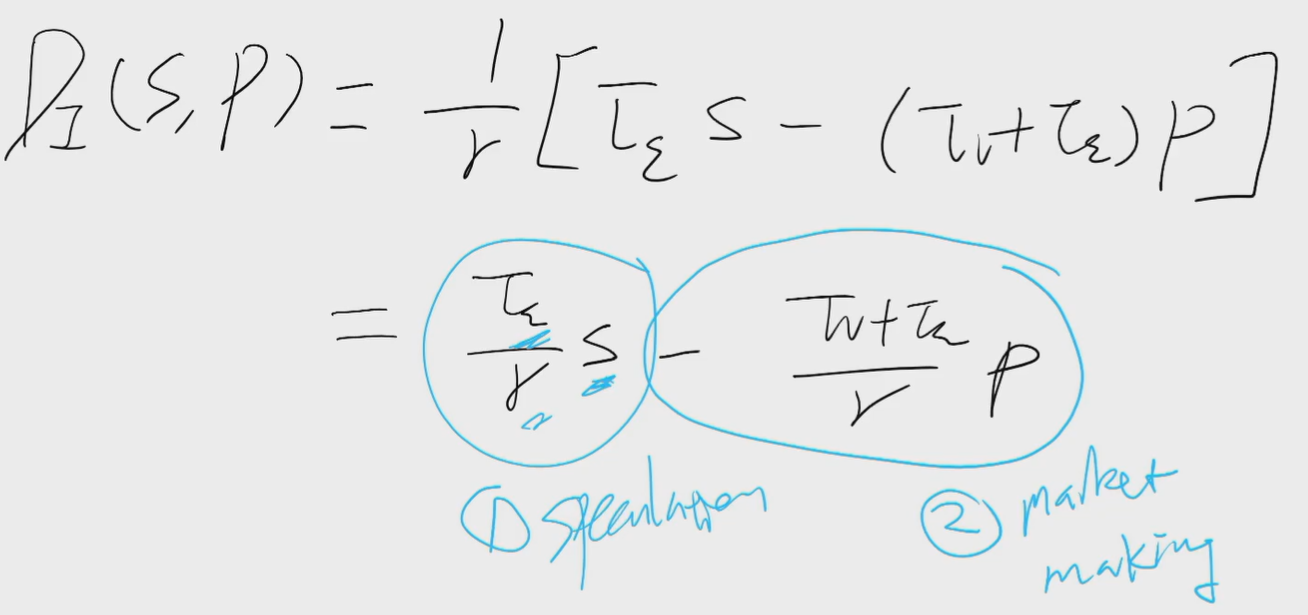 D_I(s, p) = 1/γ [τ_ε s − (τ_v + τ_ε) p]
= τ_ε/γ s − (τ_v + τ_ε)/γ p
① speculation ② market making